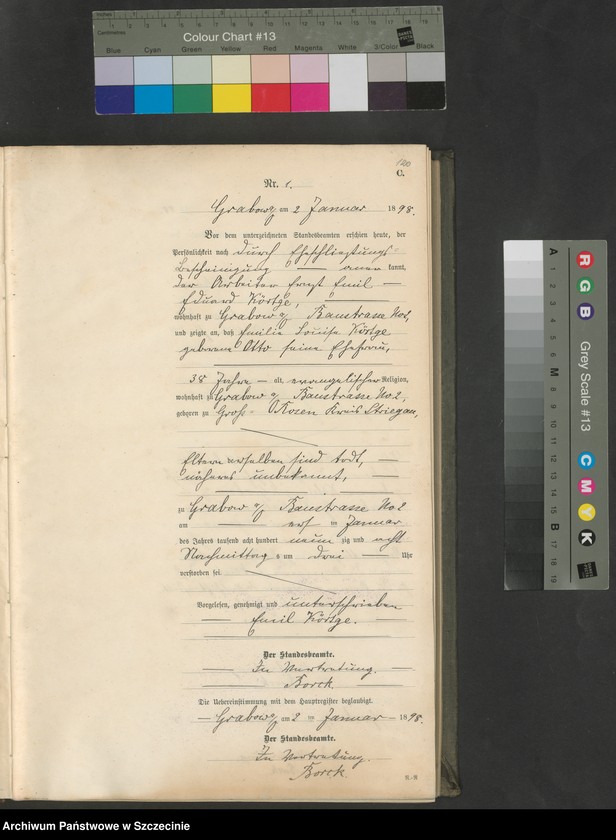 Inches
Centimetres
Colour Chart #13
Blue Cyan Green Yellow Red Magenta White 3/Color Black
120
C.
Nr. 1.
Grabow a/O am 2 Januar 1898.
Vor dem unterzeichneten Standesbeamten erschien heute, der
Persönlichkeit nach durch Eheschließungs-
Bescheinigung anerkannt,
der Arbeiter Ernst Emil
Eduard Körtge,
wohnhaft zu Grabow a/ Baustrasse No 2,
und zeigte an, daß Emilie Louise Körtge
geborene Otto seine Ehefrau,
38 Jahre alt, evangelischer Religion,
wohnhaft zu Grabow a/ Baustrasse No 2,
geboren zu Groß-Rosen Kreis Striegau,
Eltern derselben sind todt,
näheres unbekannt,
zu Grabow a/ Baustrasse No 2
am Januar
des Jahres tausend acht hundert neunzig und acht
Nachmittags um drei Uhr
verstorben sei.
Vorgelesen, genehmigt und unterschrieben
Emil Körtge.
Der Standesbeamte.
In Vertretung.
Borck
Die Uebereinstimmung mit dem Hauptregister beglaubigt.
Grabow a/O am 2 ten Januar 1898.
Der Standesbeamte.
In Vertretung.
Borck.
R
G
B
Grey Scale #13
C
M
Y
K
A 1 2 3 4 5 6 M 8 9 10 11 12 13 14 15 B 17 18 19
Archiwum Państwowe w Szczecinie